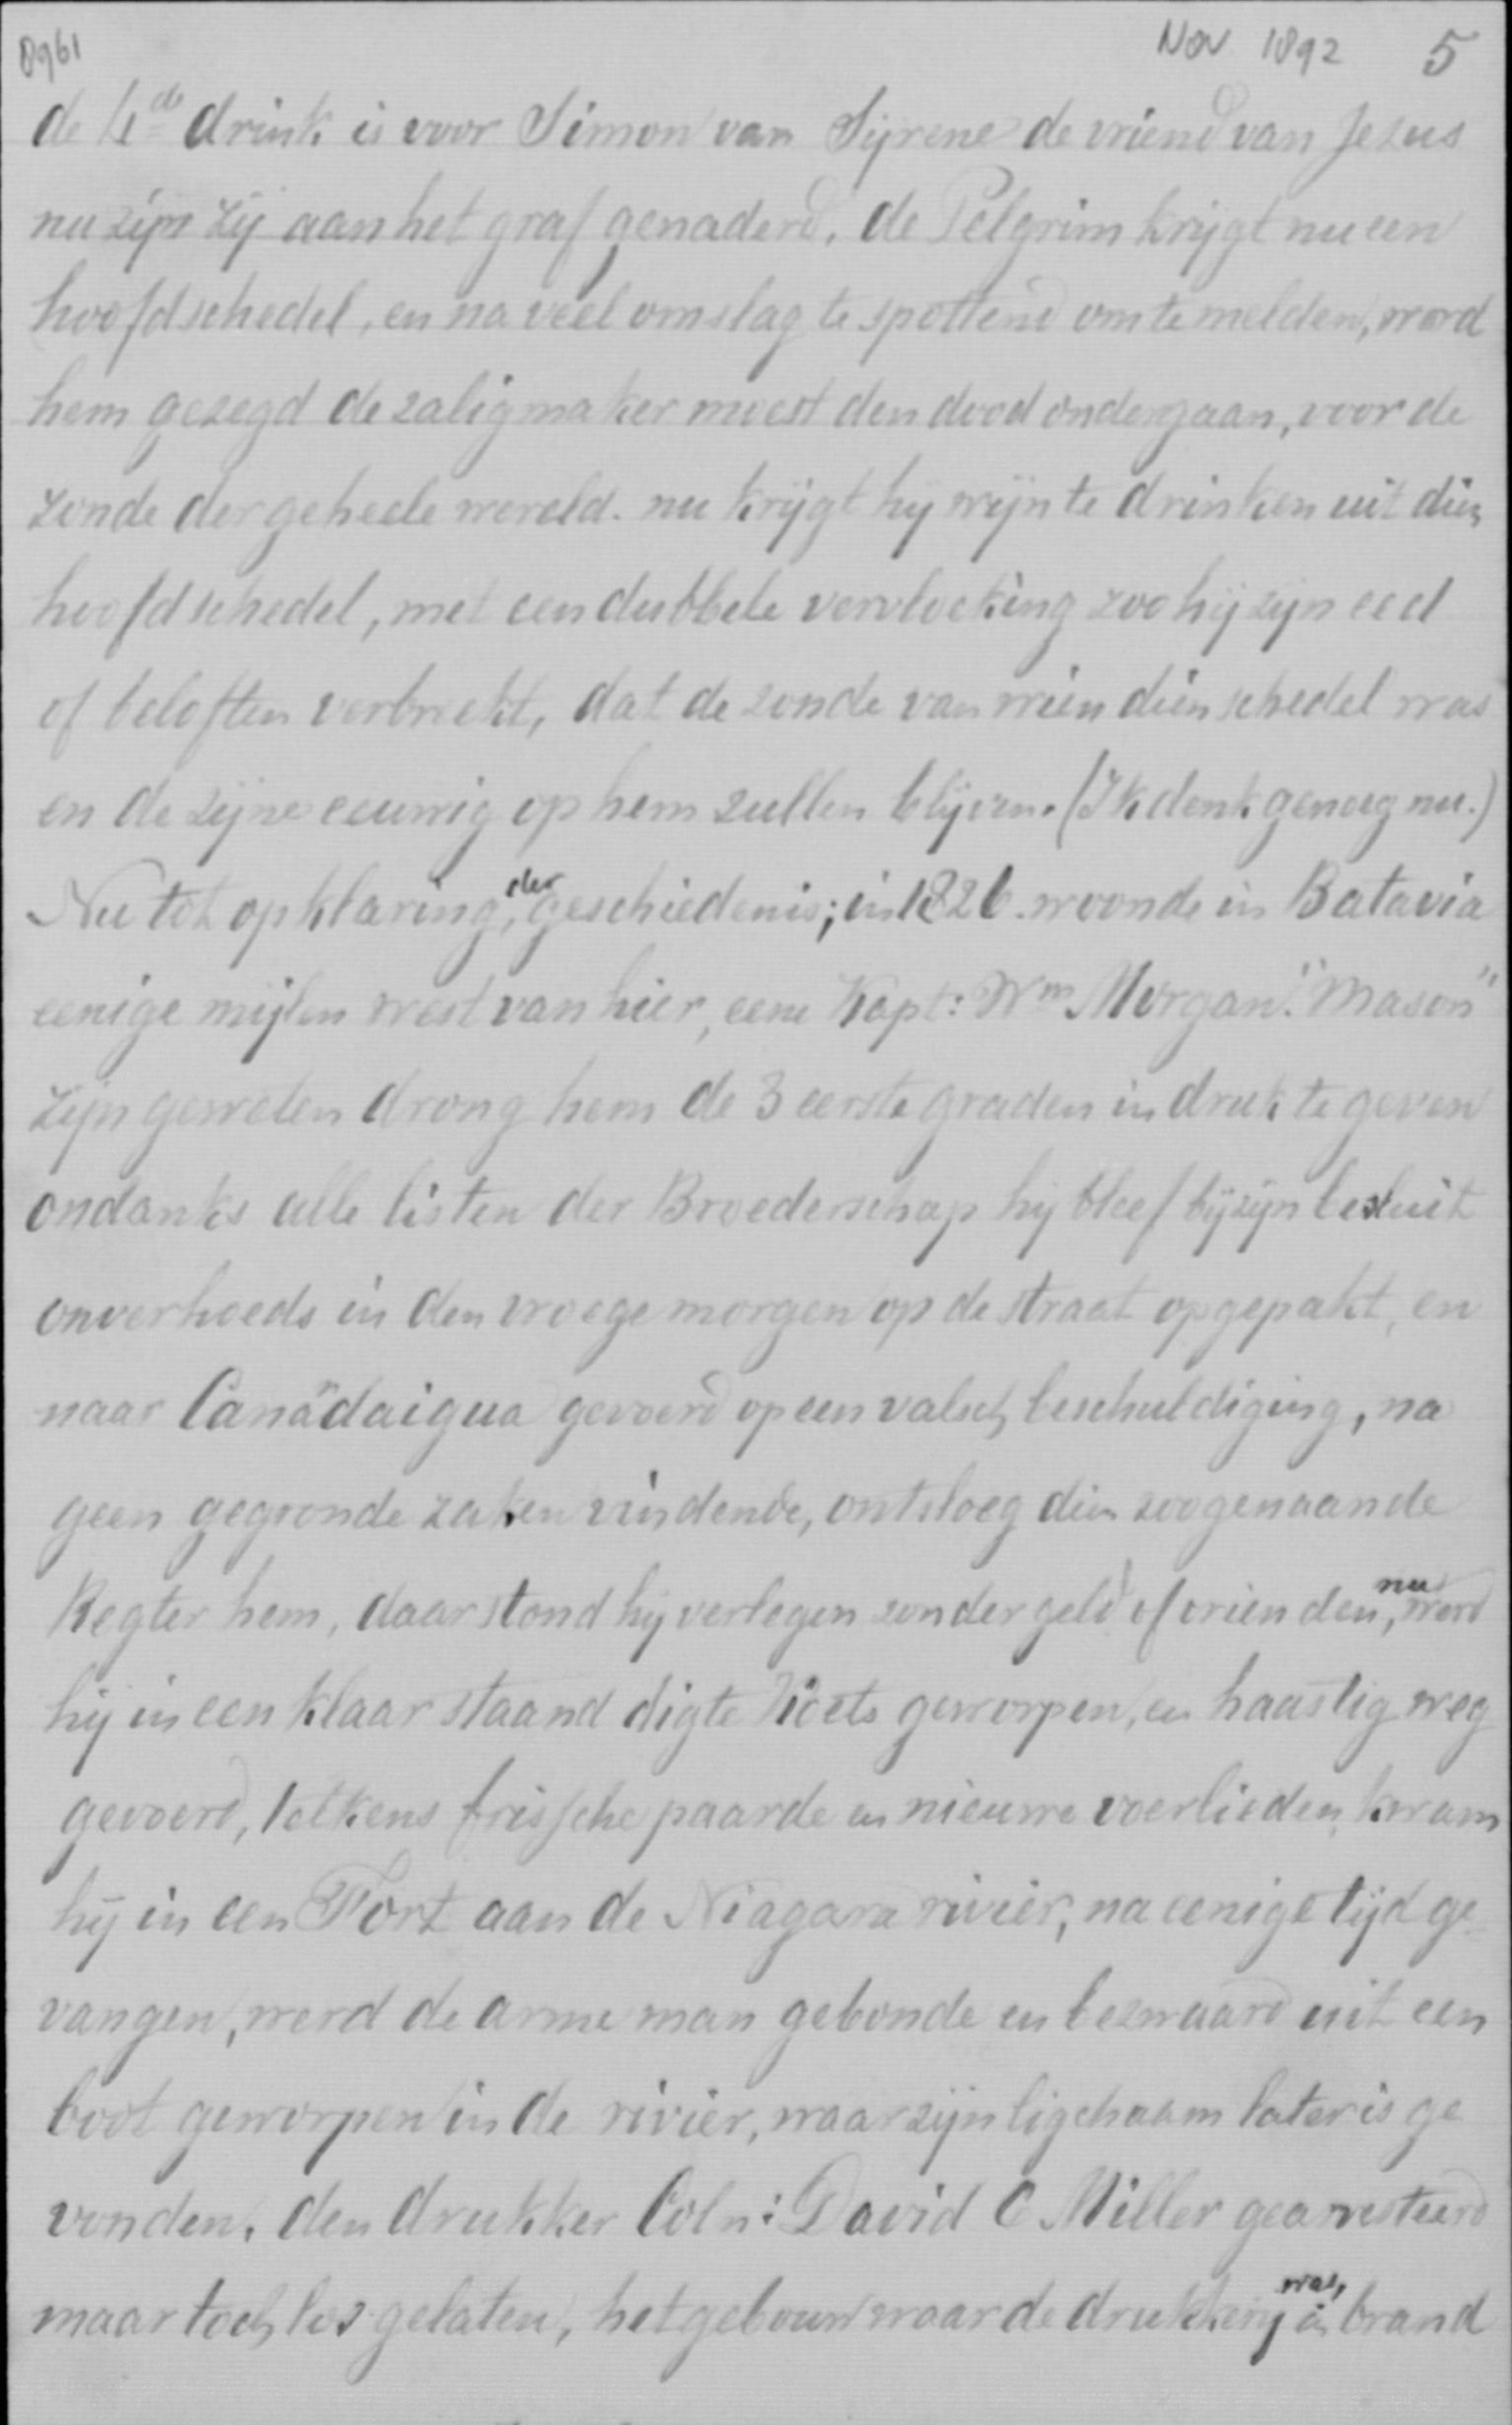 8961 Nov 1892 5
de 4de drink is voor Simon van Syrene de vriend van Jezus
nu zijn zij aan het graf genaderd, de Pelgrim krijgt nu een
hoofdschedel, en na veel omslag te spottend om te melden, word
hem gezegd de zaligmaker moest den dood ondergaan, voor de
zonde der geheele wereld. nu krijgt hij wijn te drinken uit dien
hoofdschedel, met een dubbele vervloeking zoo hij zijn eed
of beloften verbreekt, dat de zonde van wien dien schedel was
en de zijne eeuwig op hem zullen blijven. (Ik denk genoeg nu.)
Nu tot opklaring, der geschiedenis; in 1826. woonde in Batavia
eenige mijlen west van hier, eene Kapt: Wm Morgan. "Mason"
zijn geweten drong hem de 3 eerste graden in druk te geven
ondanks alle listen der Broederschap hij bleef bij zijn besluit
onverhoeds in den vroege morgen op de straat opgepakt, en
naar Canandaigua gevoerd op een valsch beschuldiging, na
geen gegronde zaken vindende, ontsloeg dien zoogenaande
Regter hem, daar stond hij verlegen zonder geld of vrienden, nu werd
hij in een klaar staand digte Koets geworpen, en haastig weg
gevoerd, telkens frissche paarde en nieuwe voerlieden, kwam
hij in een Fort aan de Niagara rivier, na eenige tijd ge
vangen, werd de arme man gebonde en bezwaard uit een
boot geworpen in de rivier, waar zijn ligchaam later is ge
vonden. den drukker Coln: David C Miller gearresteerd
maar toch los gelaten, het gebouw waar de drukkerij was, in brand